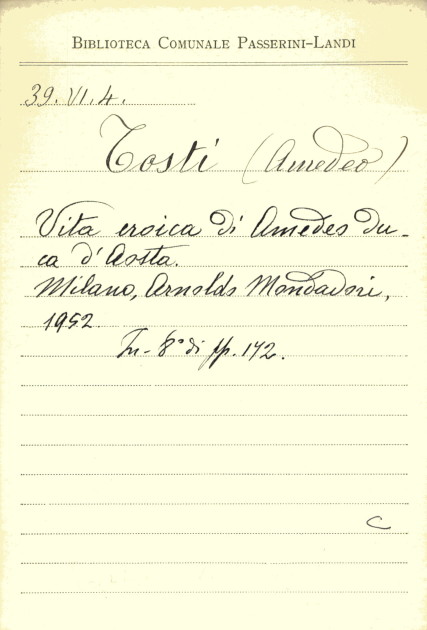 BIBLIOTECA COMUNALE PASSERINI-LANDI
39. VI. 4.
Tosti (Amedeo)
Vita eroica di Amedeo du-
ca d'Aosta.
Milano, Arnoldo Mondadori,
1952.
In-8° di pp. 142.
C